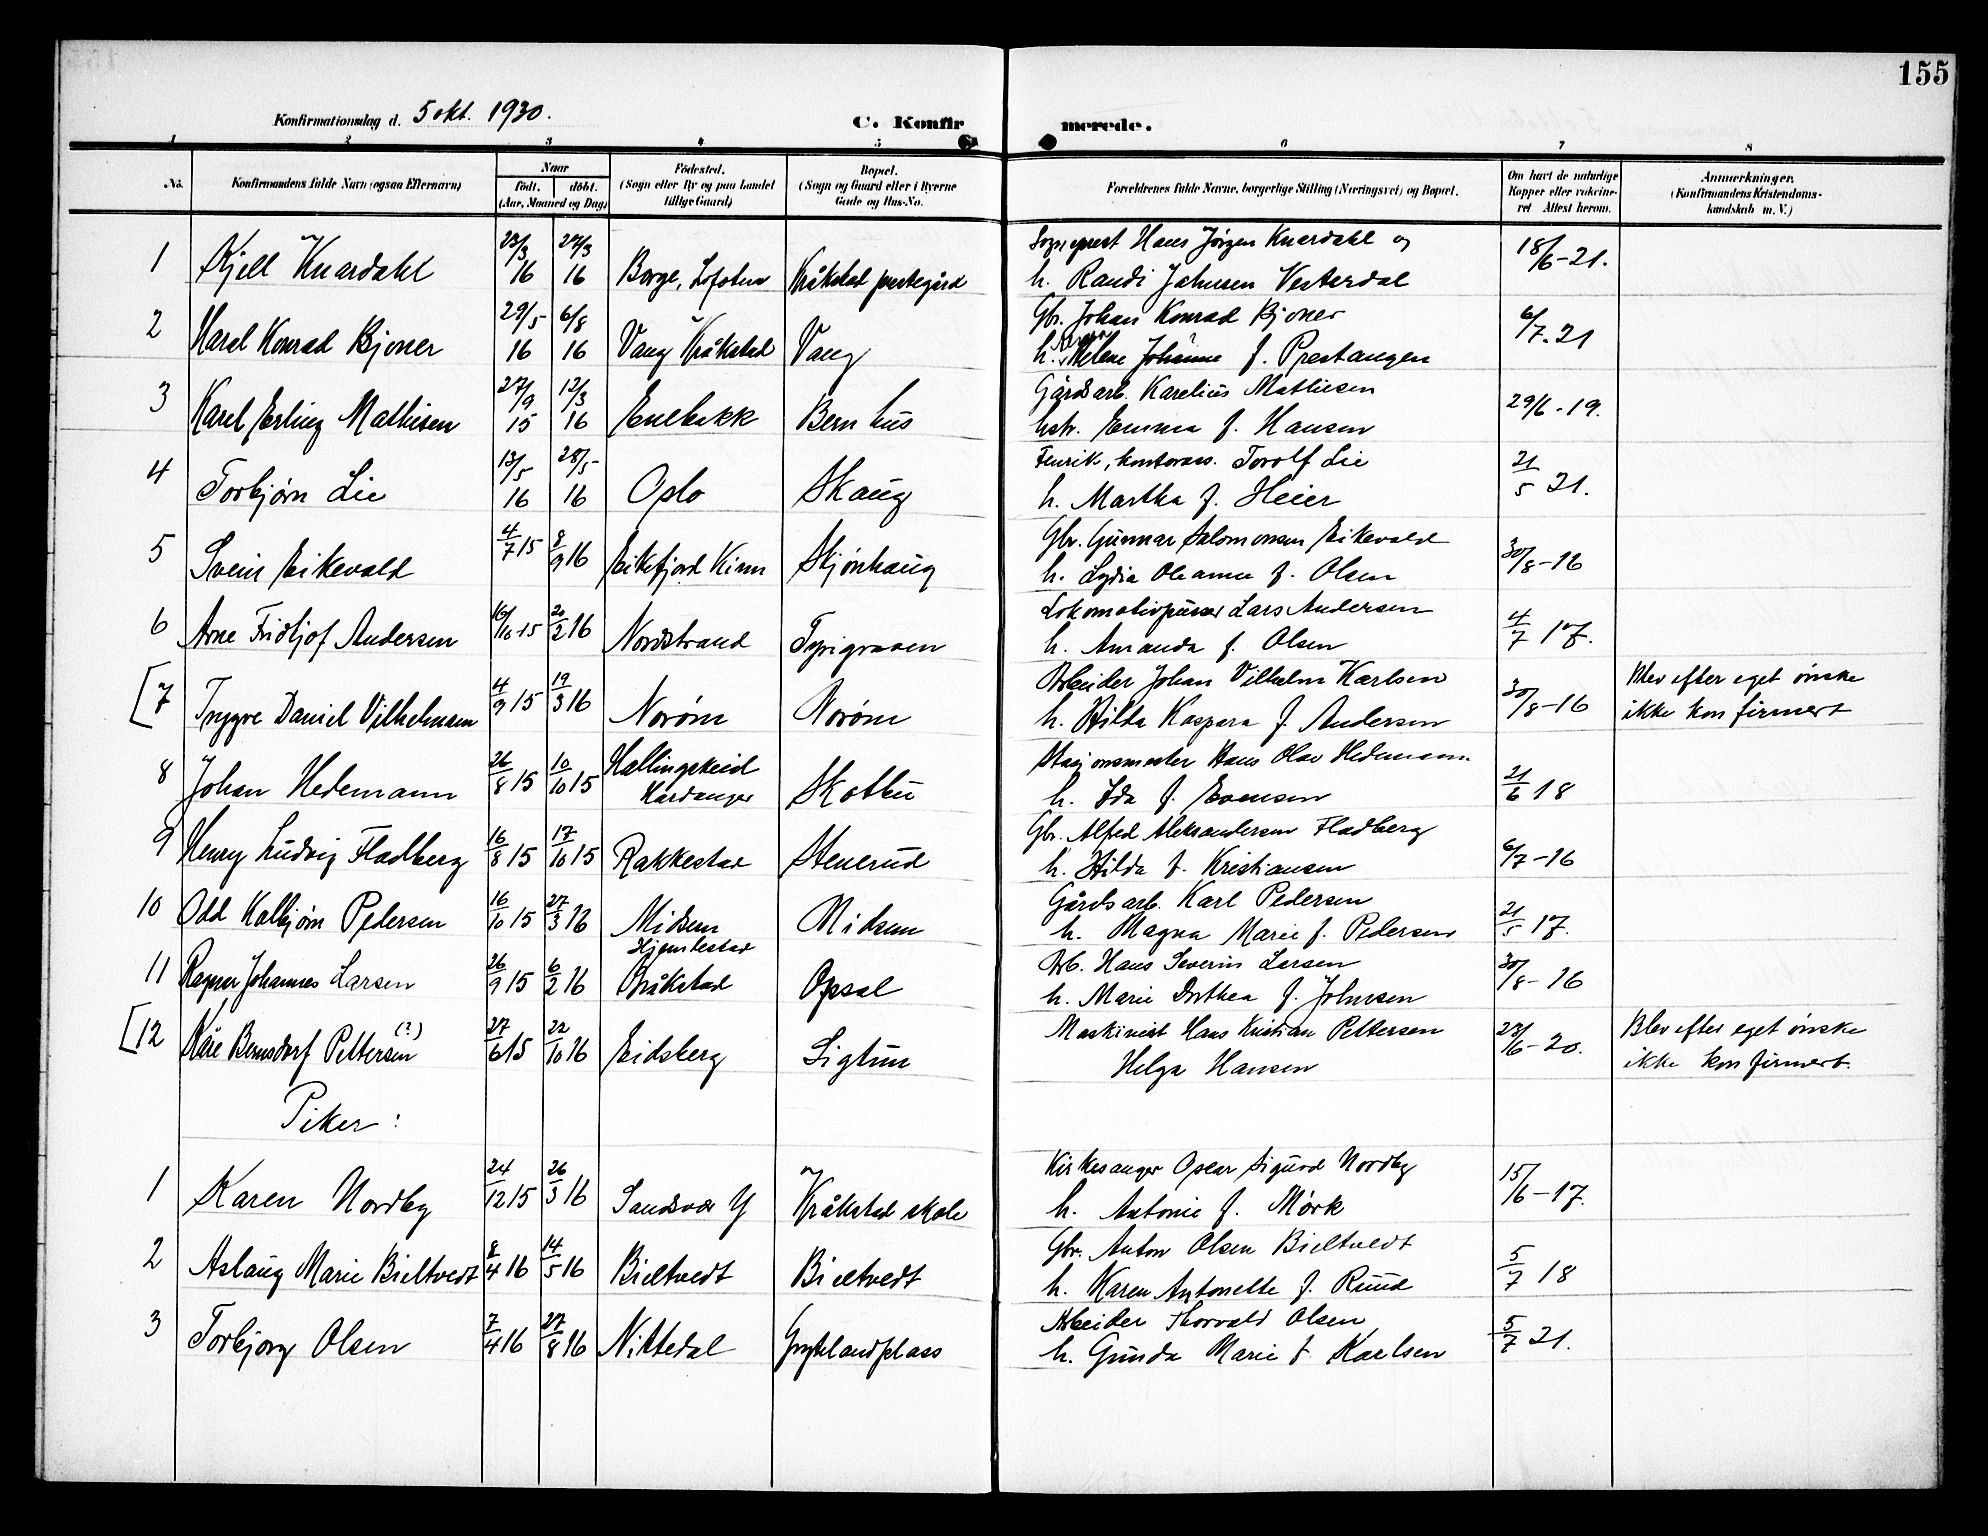 155
Konfirmationsdag d. 5 okt. 1930.
C. Konfirmerede.
1 2 3 4 5 6 7 8
No. Konfirmandens fulde Navn (ogsaa Efternavn) Naar født. døbt. (Aar, Maaned og Dag) Fødested. (Sogn eller By og paa Landet tillige Gaard) Bopæl. (Sogn og Gaard eller i Byerne Gade og Hus-No. Forældrenes fulde Navne, borgerlige Stilling (Næringsvei) og Bopæl. Om havt de naturlige Kopper eller vaccineret Attest herom. Anmerkninger. (Konfirmandens Kristendomskundskab m. V.)
1 Kjell Knardahl 23/3 16 27/3 16 Borge, Lofoten Kråkstad prestegård Sogneprest Hans Jörgen Knardahl og
h. Randi Johnsen Vesterdal 18/6-21.
2 Haral Konrad Bjoner 29/5 16 6/8 16 Vang Kråkstad Vang Gbr. Johan Konrad Bjoner
h. Helene Johanne f. Prestangen 6/7-21
3 Karel Erling Mathisen 27/9 15 12/3 16 Enebakk Bernhus Gårdsarb. Karelius Mathiesen
hstr. Emma f. Hansen 29/6-19.
4 Torbjørn Lie 13/5 16 28/5 16 Oslo Skaug Fenrik, kontorass. Torolf Lie
h. Martha f. Heier 21/5 21.
5 Svein Eikevald 4/7 15 8/9 16 Eikefjord Kinn Skjønhaug Gbr. Gunnar Salomonsen Eikevald
h. Lydia Oleanna f. Olsen 30/8-16
6 Arne Fridtjof Andersen 16/10 15 20/2 16 Nordstrand Tyrigraven Lokomotivpusser Lars Andersen
h. Amanda f. Olsen 4/7 17.
[7 Trygve Daniel Vilhelmsen 4/9 15 19/3 16 Norøm Norøm Arbeider Johan Vilhelm Karlsen
h. Hilda Kaspara f. Andersen 30/8-16 Blev efter eget ønske
ikke konfirmert
8 Johan Hedemann 26/8 15 10/10 15 Hallingskeid
Hardanger Skotbu Stasjonsmester Hans Olav Hedemann
h. Ida f. Evensen 21/6 18
9 Henry Ludvig Fladberg 16/8 15 17/10 15 Rakkestad Stenerud Gbr. Alfed Aleksandersen Fladberg
h. Hilda f. Kristiansen 6/7-16
10 Odd Kolbjørn Pedersen 16/10 15 27/3 16 Midsem Midsem Gårdsarb. Karl Pedersen
h. Magna Marie f. Pedersen 21/5 17.
11 Ragnar Johannes Larsen 26/9 15 6/2 16 Hjemlestad
Kråkstad Opsal Arb. Hans Severin Larsen
h. Marie Dorthea f. Johnsen 30/8-16
[12 Kåre Bernsdorf Pettersen (?) 27/6 15 22/10 16 Eidsberg Sigtun Maskinist Hans Kristian Pettersen
Helga Hansen 23/6-20. Blev efter eget ønske
ikke konfirmert.
Piker:
1 Karen Nordby 24/12 15 26/3 16 Sandsvær Kråkstad skole Kirkesanger Oscar Sigurd Nordby
h. Antonie f. Mørk 15/6-17.
2 Aslaug Marie Bieltvedt 8/4 16 14/5 16 Bieltvedt Bieltvedt Gbr. Anton Olsen Bieltvedt
h. Karen Antonette f. Ruud 5/7 18
3 Torbjørg Olsen 7/4 16 27/8 16 Nittedal Arbeider Thorvald Olsen
h. Gunda Marie f. Karlsen 5/7 21.